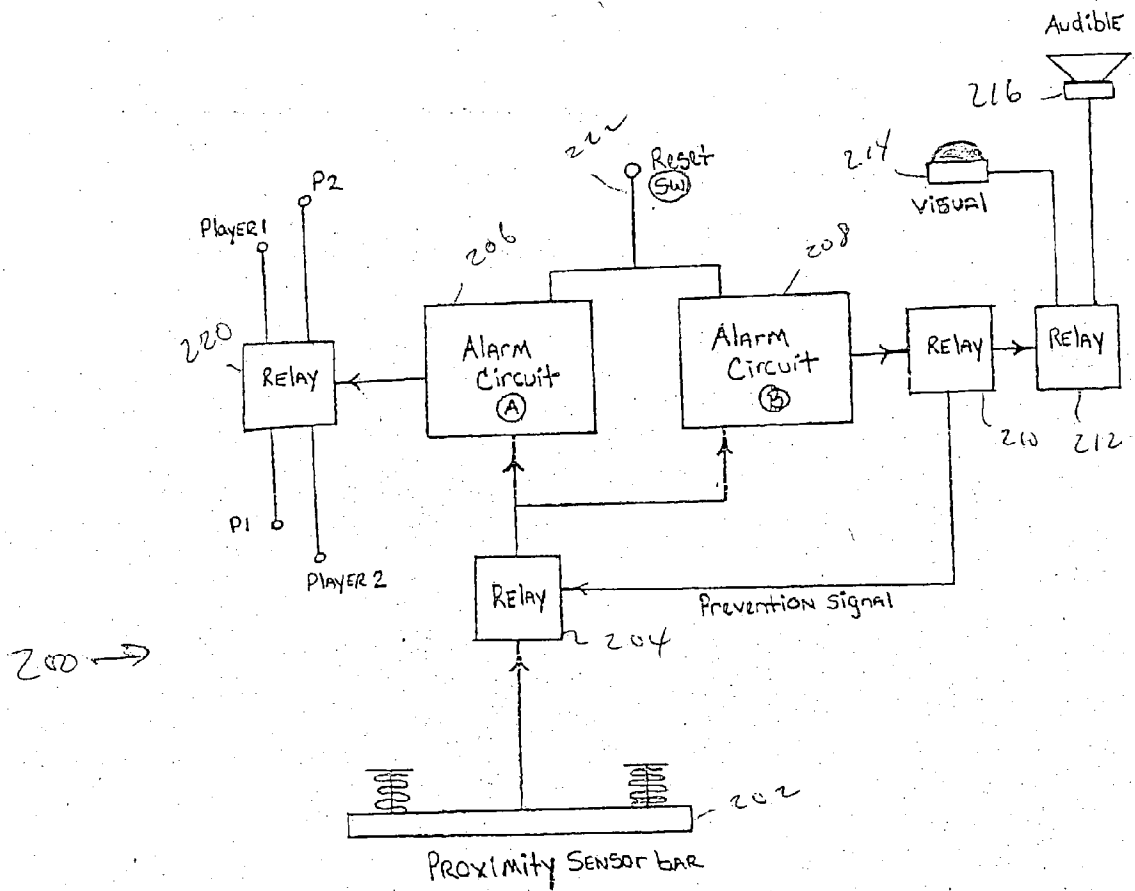 Audible
216
222
Reset
SW
214
Visual
P2
Player1
206
208
220
Relay
Alarm
Circuit
A
Alarm
Circuit
B
Relay
Relay
210
212
P1
Player 2
Relay
Prevention Signal
204
200
202
Proximity Sensor bar